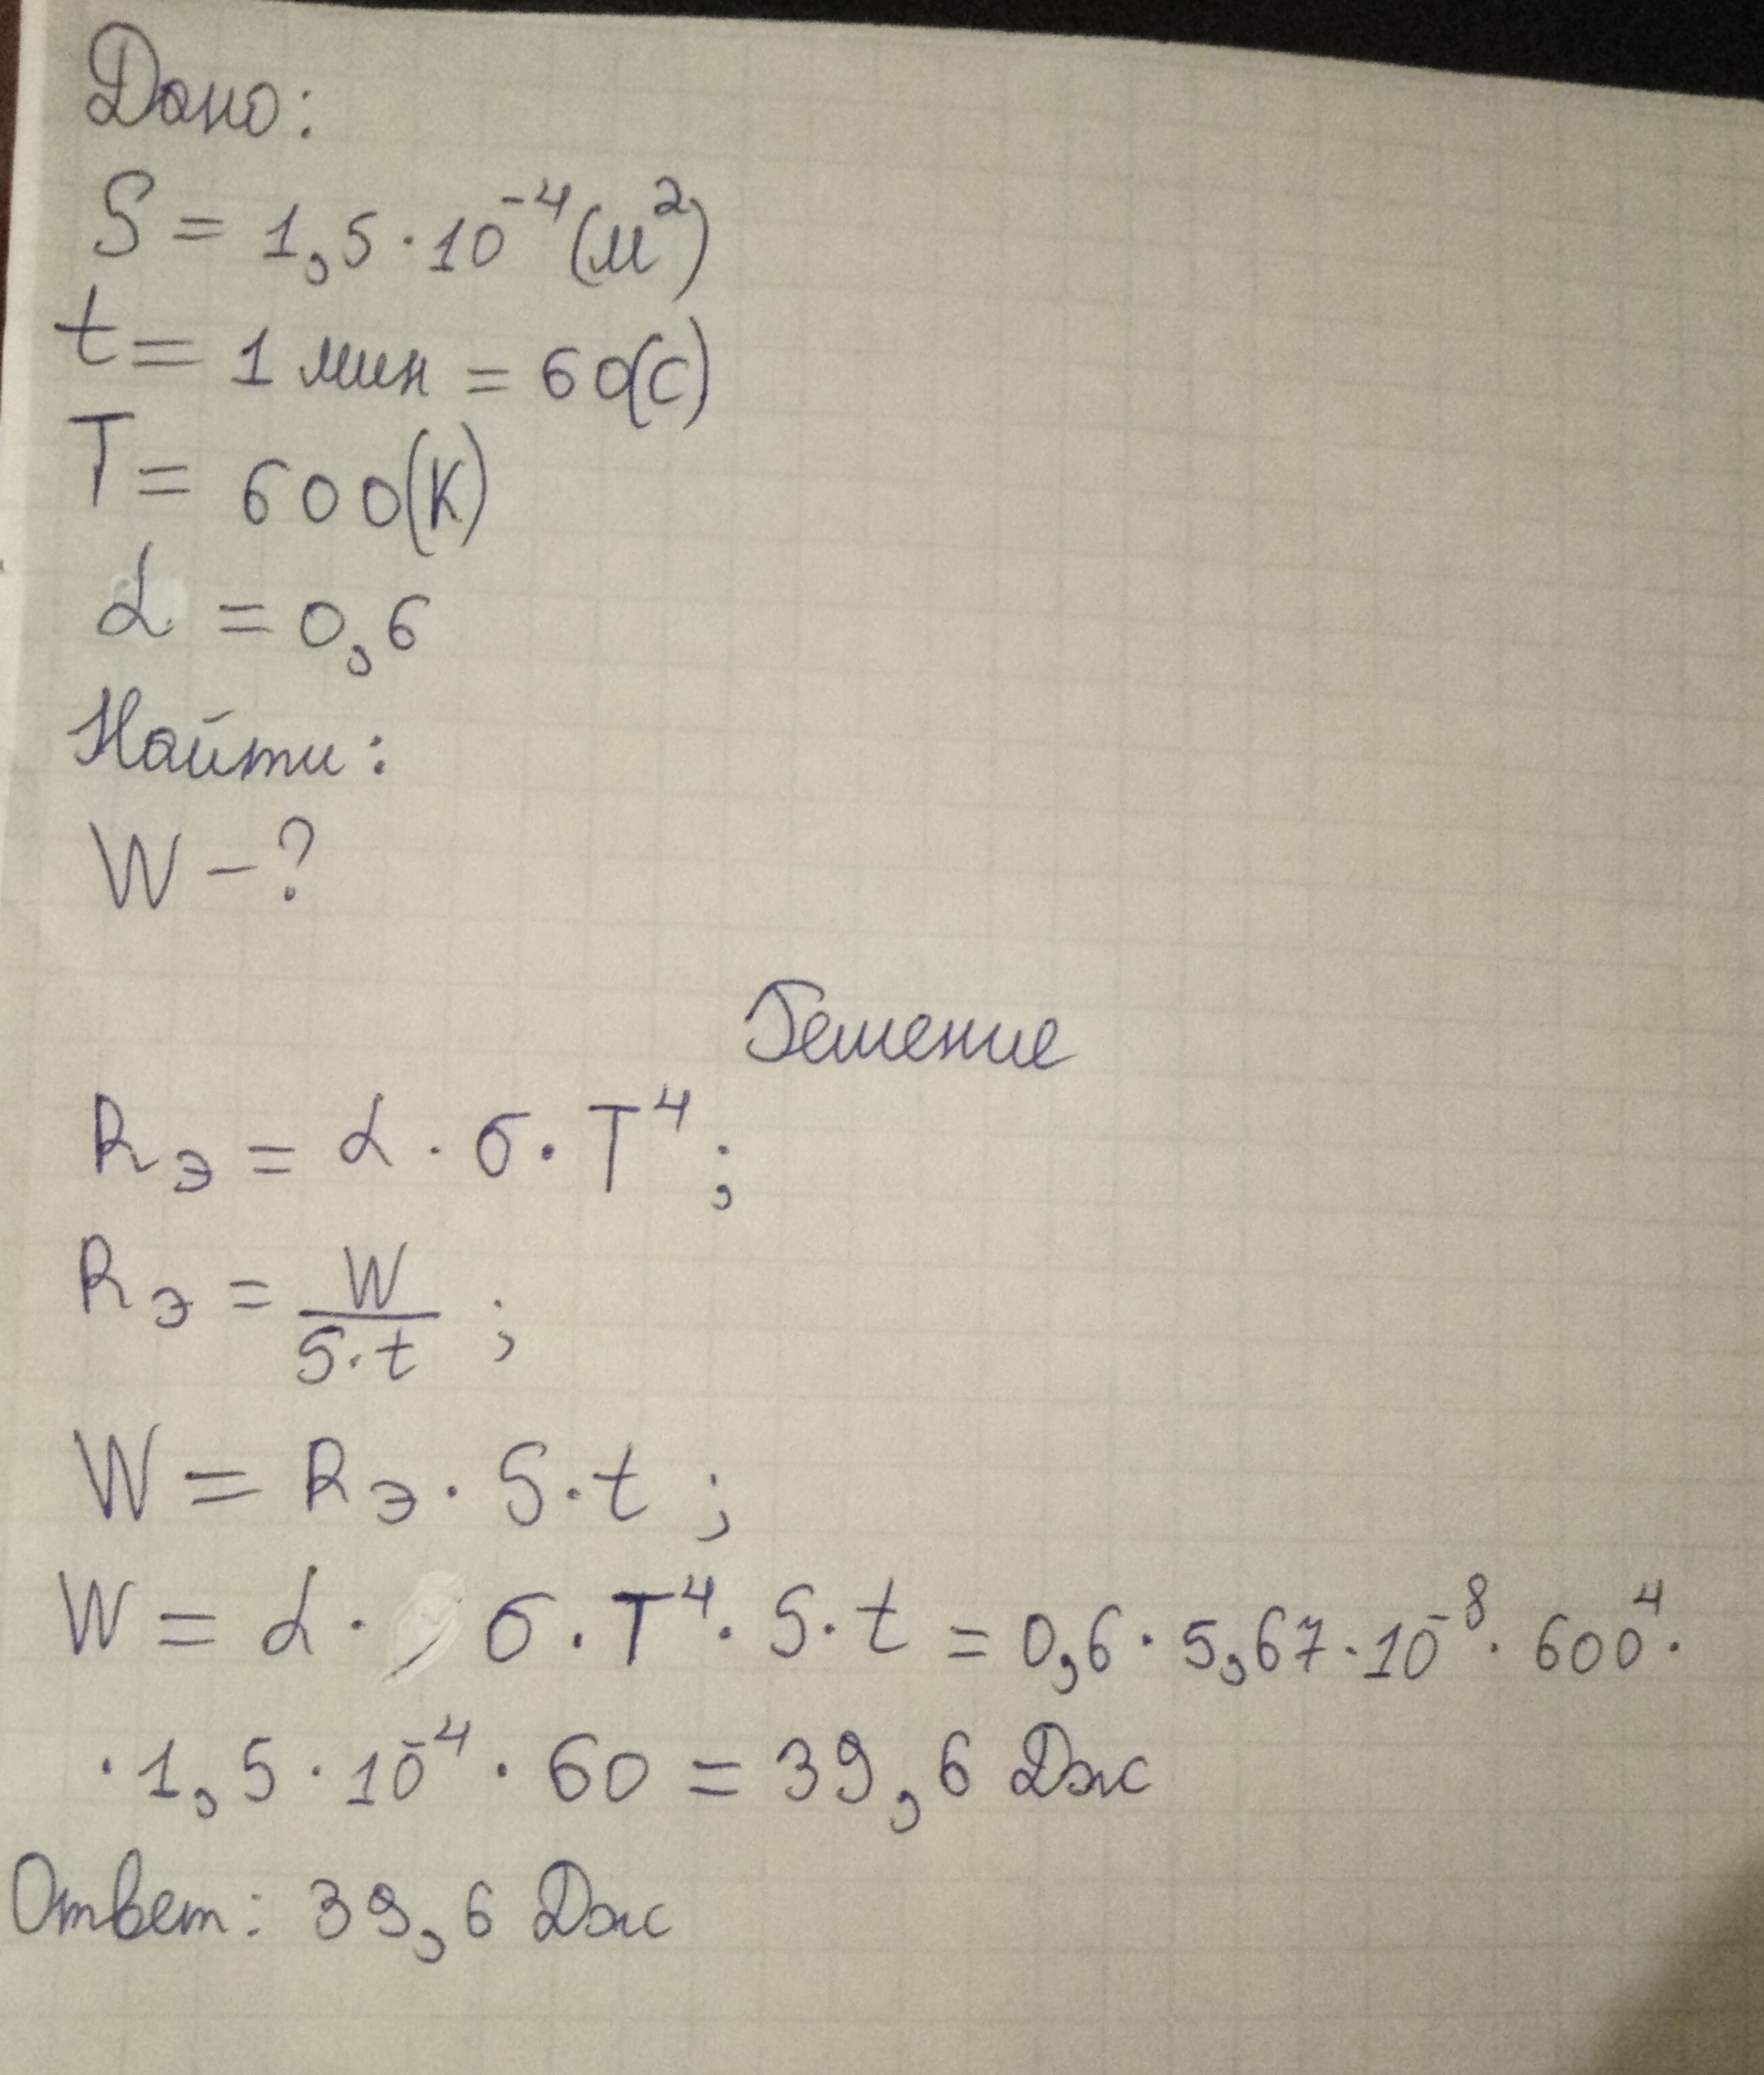 Дано:
S = 1,5 · 10⁻⁴ (м²)
t = 1 мин = 60(с)
T = 600(К)
α = 0,6
Найти:
W - ?
Решение
Rэ = α · σ · T⁴ ;
Rэ = W / S·t ;
W = Rэ · S · t ;
W = α · σ · T⁴ · S · t = 0,6 · 5,67 · 10⁻⁸ · 600⁴ ·
· 1,5 · 10⁻⁴ · 60 = 39,6 Дж
Ответ: 39,6 Дж